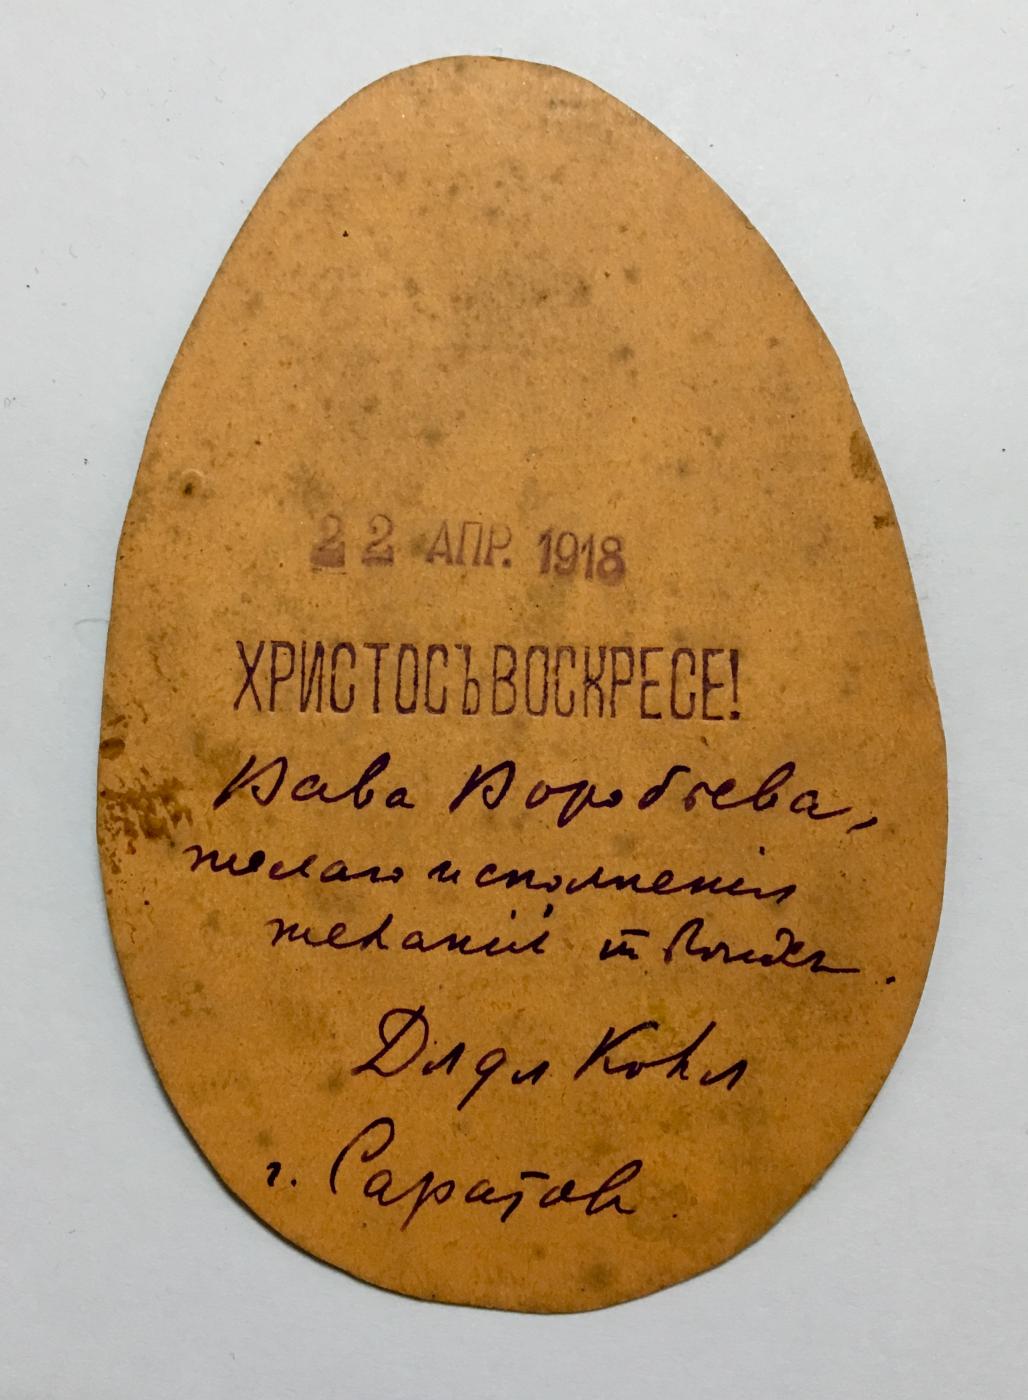 22 АПР. 1918
ХРИСТОСЪ ВОСКРЕСЕ!
Вава Воробьева,
желаю исполненія
желаній
Дядя Коля
г. Саратов